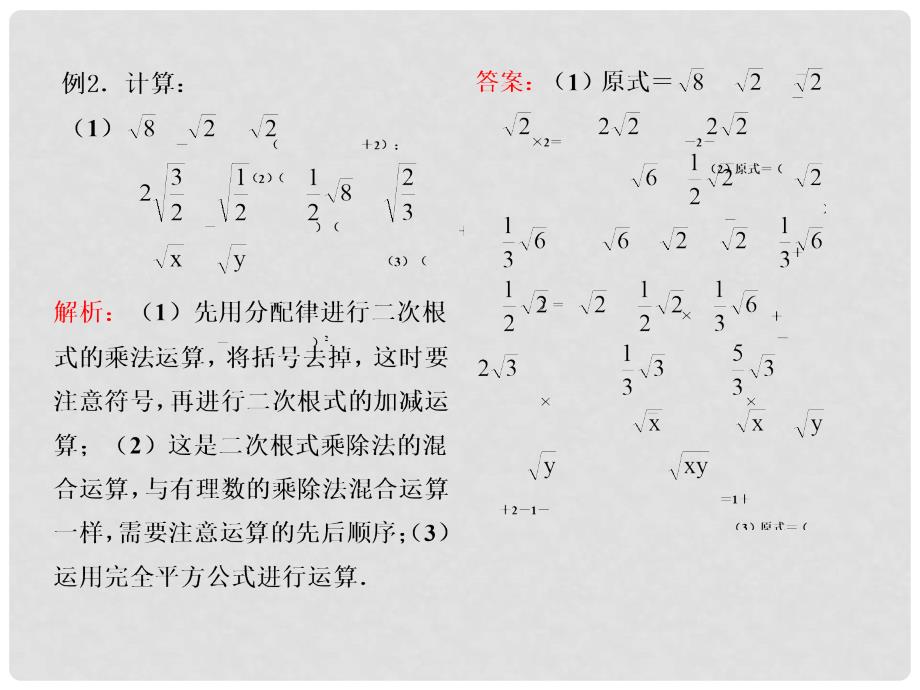 例2．计算：
（1）√8 －√2（√2 ＋2）；
2√(3/2) －√(1/2) （2）（ 1/2 √8 ）（ √(2/3) ＋
√x － √y （3）（
）²
解析：（1）先用分配律进行二次根
式的乘法运算，将括号去掉，这时要
注意符号，再进行二次根式的加减运
算；（2）这是二次根式乘除法的混
合运算，与有理数的乘除法混合运算
一样，需要注意运算的先后顺序；（3）
运用完全平方公式进行运算．
答案：（1）原式＝√8 √2 √2 －
√2 ×2＝ 2√2 －2－ 2√2
√6 1/2 √2 （2）原式＝（ √2
1/3 √6 √6 √2 √2 － 1/3 √6 ＋
1/2 √2 ＝ √2 1/2 √2 × 1/3 √6 ＋
2√3 × 1/3 √3 5/3 √3 － ×
√x √x √y
√y √xy ＝1＋
＋2－1－
（3）原式＝（